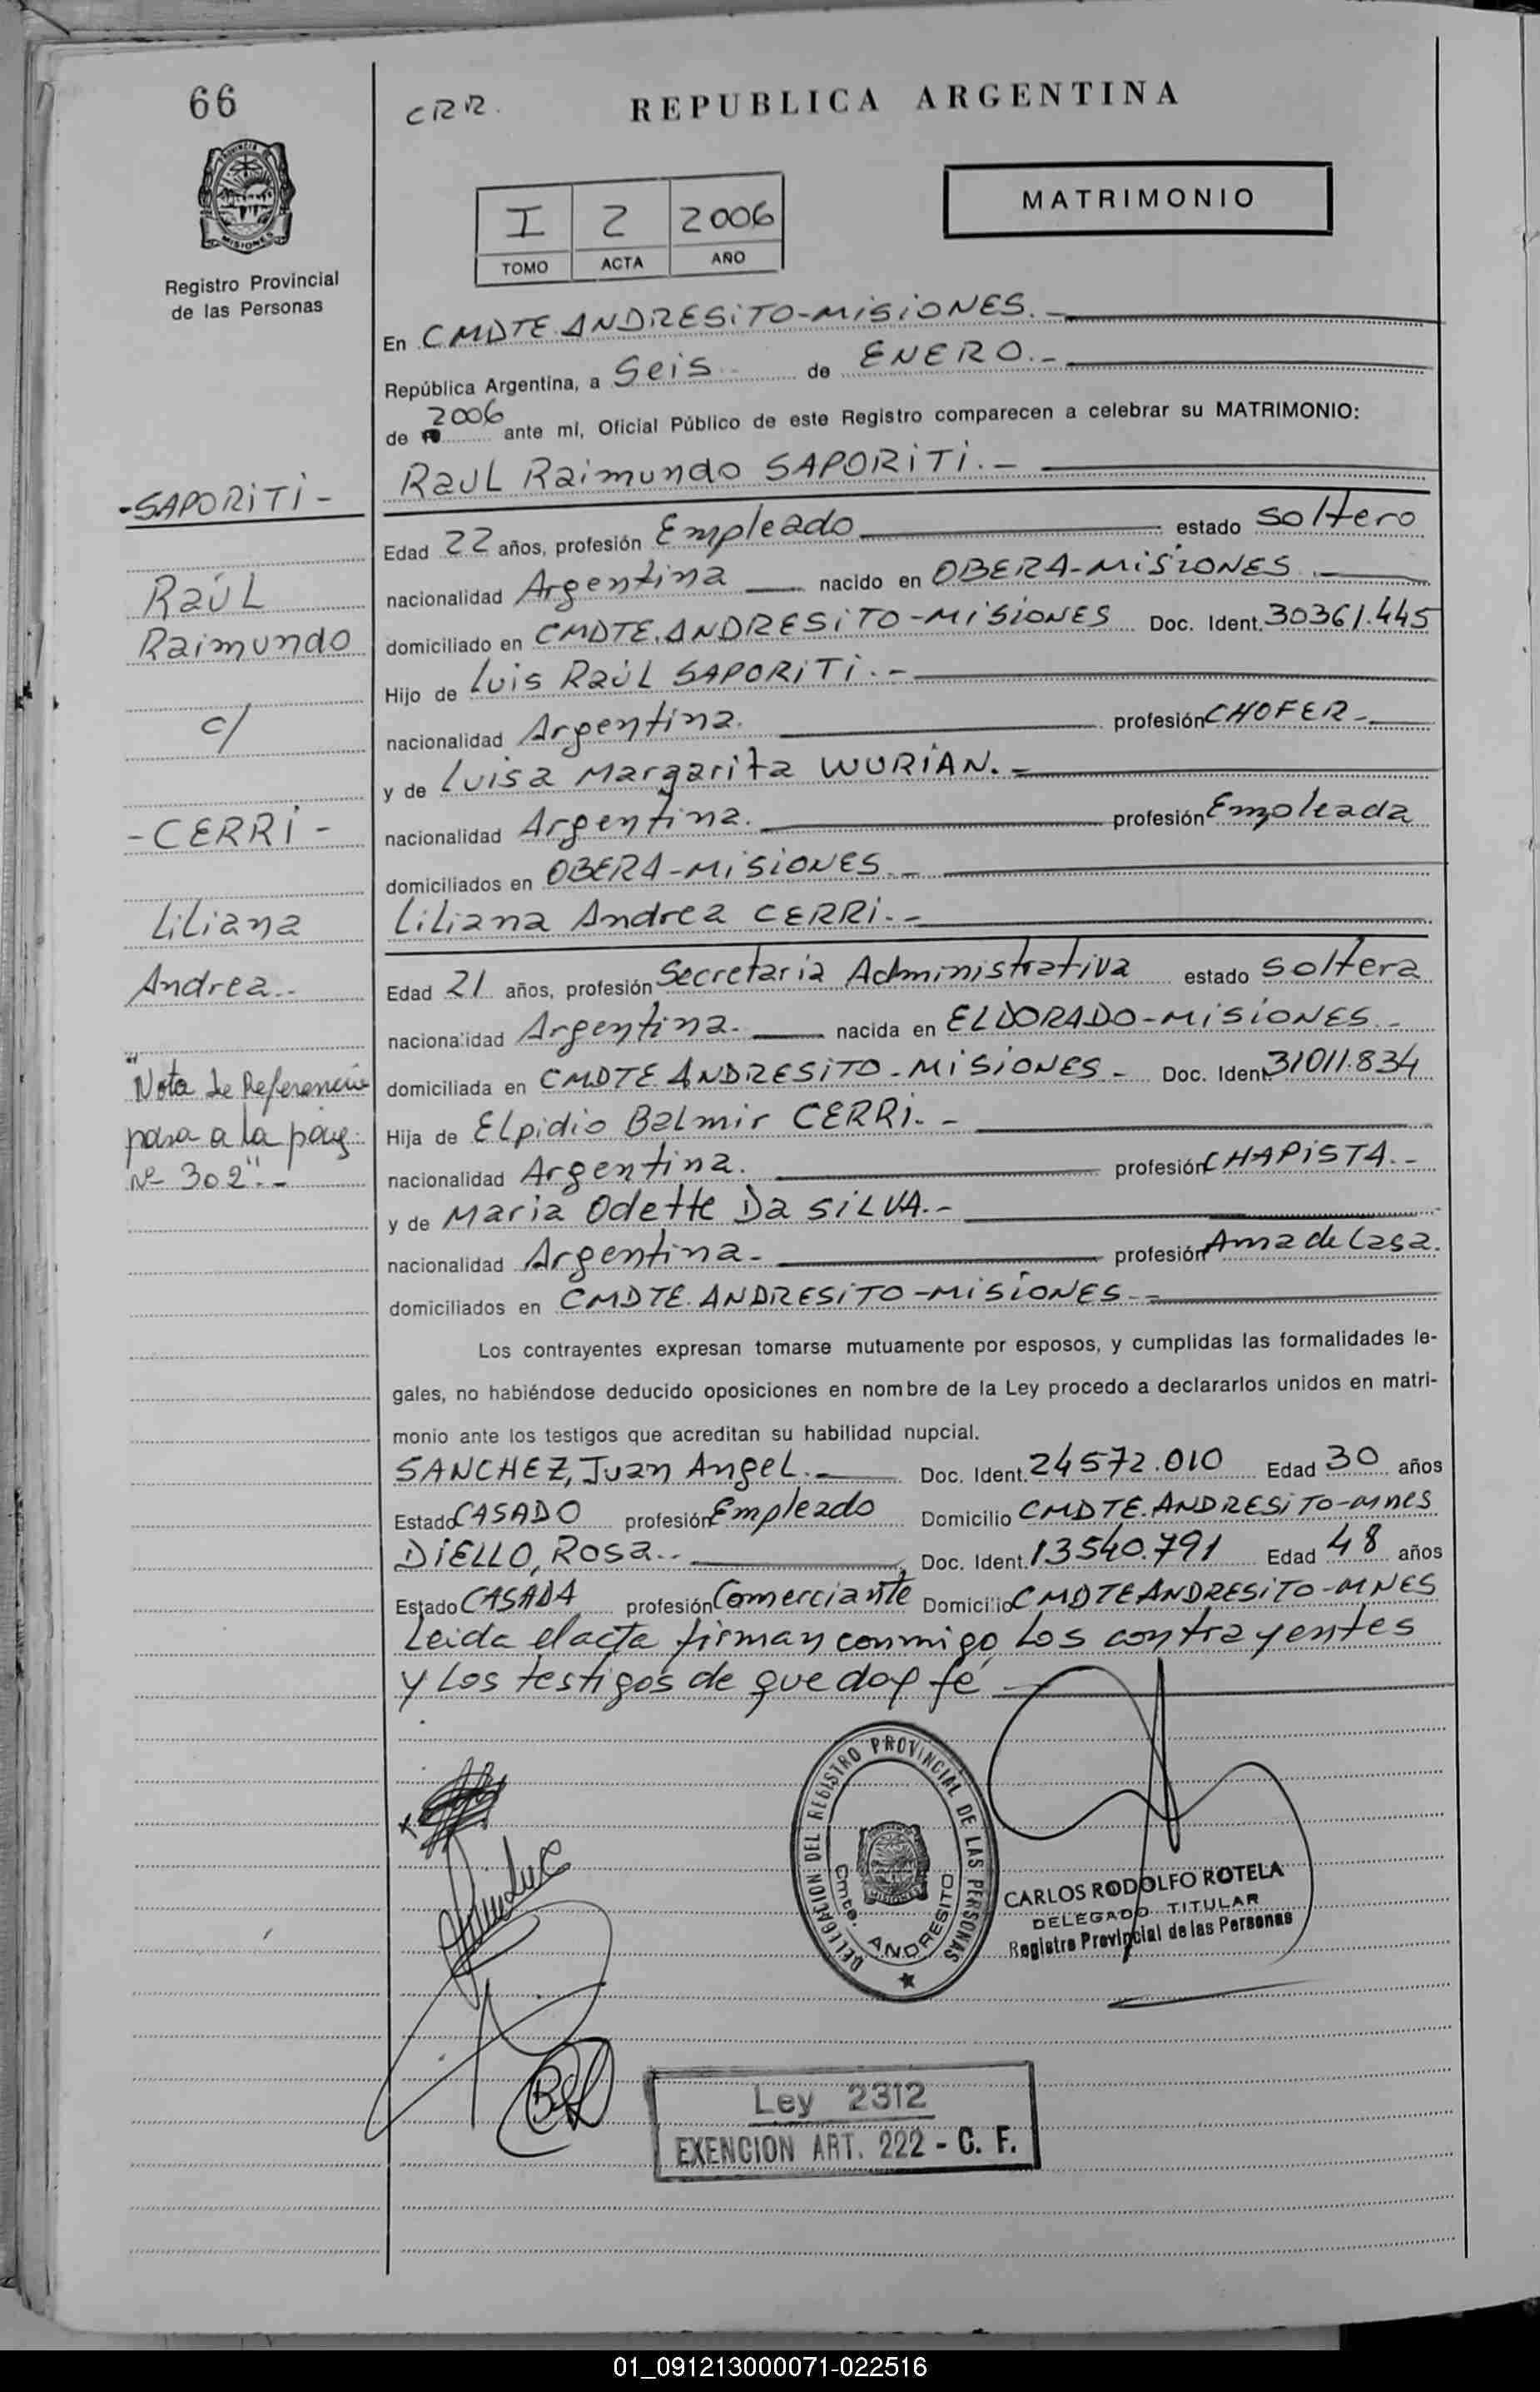 66
CRR.
REPUBLICA ARGENTINA
PROVINCIA DE
MISIONES
Registro Provincial
de las Personas
I 2 2006
TOMO ACTA AÑO
MATRIMONIO
En CMDTE ANDRESiTO-MiSiONES.-
República Argentina, a Seis de ENERO.-
de 2006 ante mí, Oficial Público de este Registro comparecen a celebrar su MATRIMONIO:
RaUL Raimundo SAPORiTi.-
Edad 22 años, profesión Empleado estado soltero
nacionalidad Argentina nacido en OBERA-MiSiONES.-
domiciliado en CMDTE.ANDRESiTO-MiSiONES Doc. Ident. 30361.445
Hijo de Luis RaúL SAPORiTi.-
nacionalidad Argentina. profesión CHOFER-
y de Luisa Margarita WURiAN.-
nacionalidad Argentina. profesión Empleada
domiciliados en OBERA-MiSiONES.-
Liliana Andrea CERRi.-
Edad 21 años, profesión Secretaria Administrativa estado soltera
nacionalidad Argentina. nacida en ELDORADO-MiSiONES.-
domiciliada en CMDTE ANDRESiTO-MiSiONES- Doc. Ident. 31011.834
Hija de ELpidio Belmir CERRi.-
nacionalidad Argentina. profesión CHAPiSTA.-
y de Maria Odette Da SiLVA.-
nacionalidad Argentina- profesión Ama de Casa.
domiciliados en CMDTE. ANDRESiTO-MiSiONES.-
-SAPORiTi-
RaúL
Raimundo
c/
-CERRi-
Liliana
Andrea..
"Nota de Referencia
pasa a la pág.
Nº 302".-
Los contrayentes expresan tomarse mutuamente por esposos, y cumplidas las formalidades le-
gales, no habiéndose deducido oposiciones en nombre de la Ley procedo a declararlos unidos en matri-
monio ante los testigos que acreditan su habilidad nupcial.
SANCHEZ, Juan AngeL.- Doc. Ident. 24572.010 Edad 30 años
Estado CASADO profesión Empleado Domicilio CMDTE.ANDRESiTO-Mnes
DiELLO, Rosa.. Doc. Ident. 13540.791 Edad 48 años
Estado CASADA profesión Comerciante Domicilio CMDTE ANDRESiTO-MNES
Leida el acta firman conmigo Los contrayentes
y Los testigos de que doy fé
DELEGACION DEL REGISTRO PROVINCIAL DE LAS PERSONAS
Cmte. ANDRESITO
MISIONES
CARLOS RODOLFO ROTELA
DELEGADO TITULAR
Registro Provincial de las Personas
Ley 2312
EXENCION ART. 222 - C. F.
01_091213000071-022516